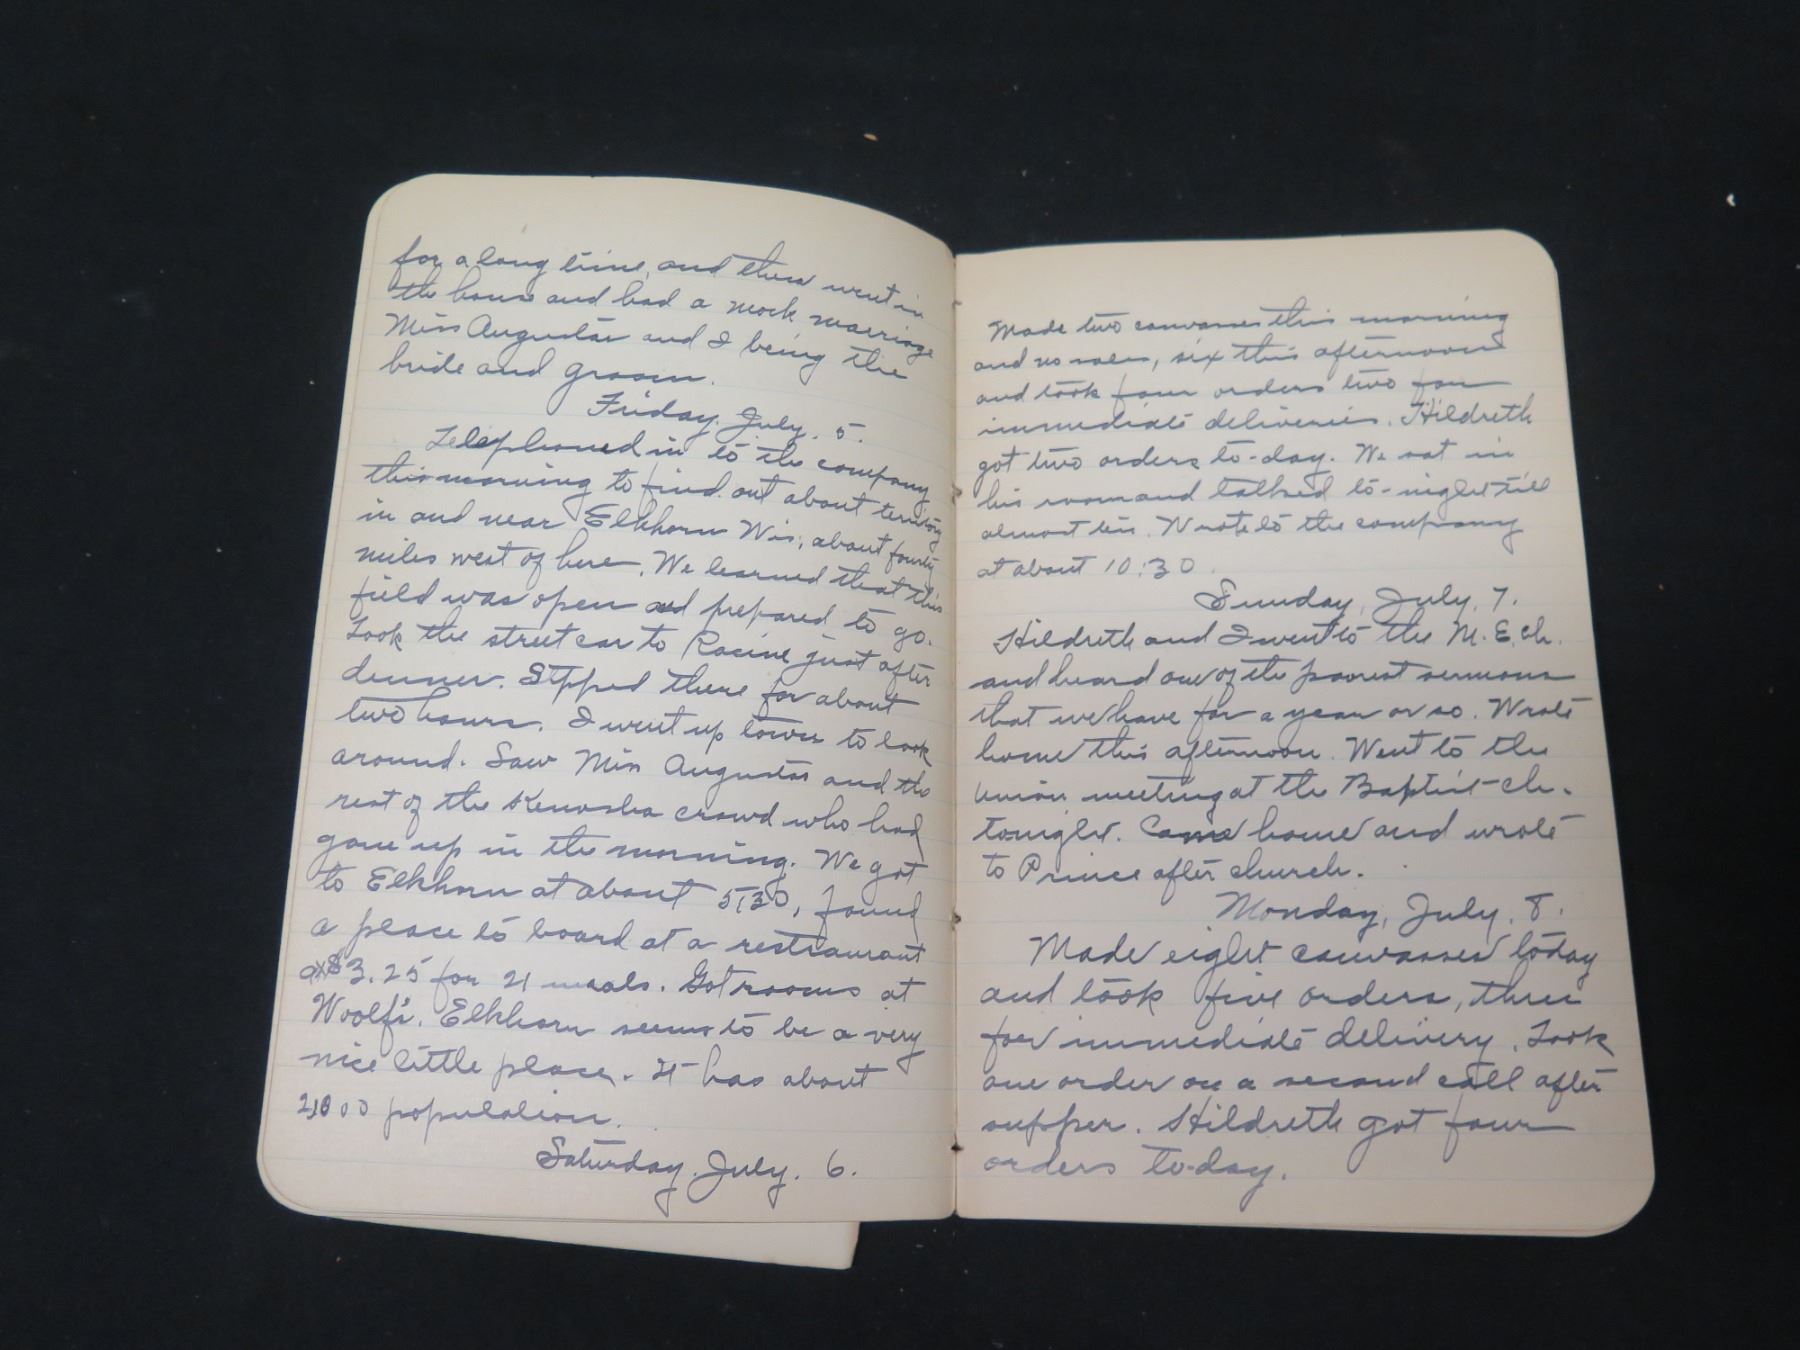 for a long time, and then went in
the house and had a mock marriage
Miss Augusta and I being the
bride and groom.
Friday, July. 5.
Telephoned in to the company
this morning to find out about territory
in and near Elkhorn Wis., about fourty
miles west of here. We learned that this
field was open and prepared to go.
Took the street car to Racine just after
dinner. Stpped there for about
two hours. I went up town to look
around. Saw Miss Augusta and the
rest of the Kenosha crowd who had
gone up in the morning. We got
to Elkhorn at about 5:30, found
a place to board at a restraurant
at $3.25 for 21 meals. Got rooms at
Woolf's. Elkhorn seems to be a very
nice little place. It has about
population.
Saturday, July. 6.
Made two canvasses this morning
and no sales, six this afternoon
and took four orders two for
immediate deliveries. Hildreth
got two orders to-day. We sat in
his room and talked to-night till
almost ten. Wrote to the company
at about 10:30.
Sunday, July. 7.
Hildreth and I went to the M. E. ch.
and heard one of the poorest sermons
that we have for a year or so. Wrote
home this afternoon. Went to the
union meeting at the Baptist ch.
tonight. Came home and wrote
to Prince after church.
Monday, July. 8.
Made eight canvasses today
and took five orders, three
for immediate delivery. Took
one order on a second call after
supper. Hildreth got four
orders to-day.